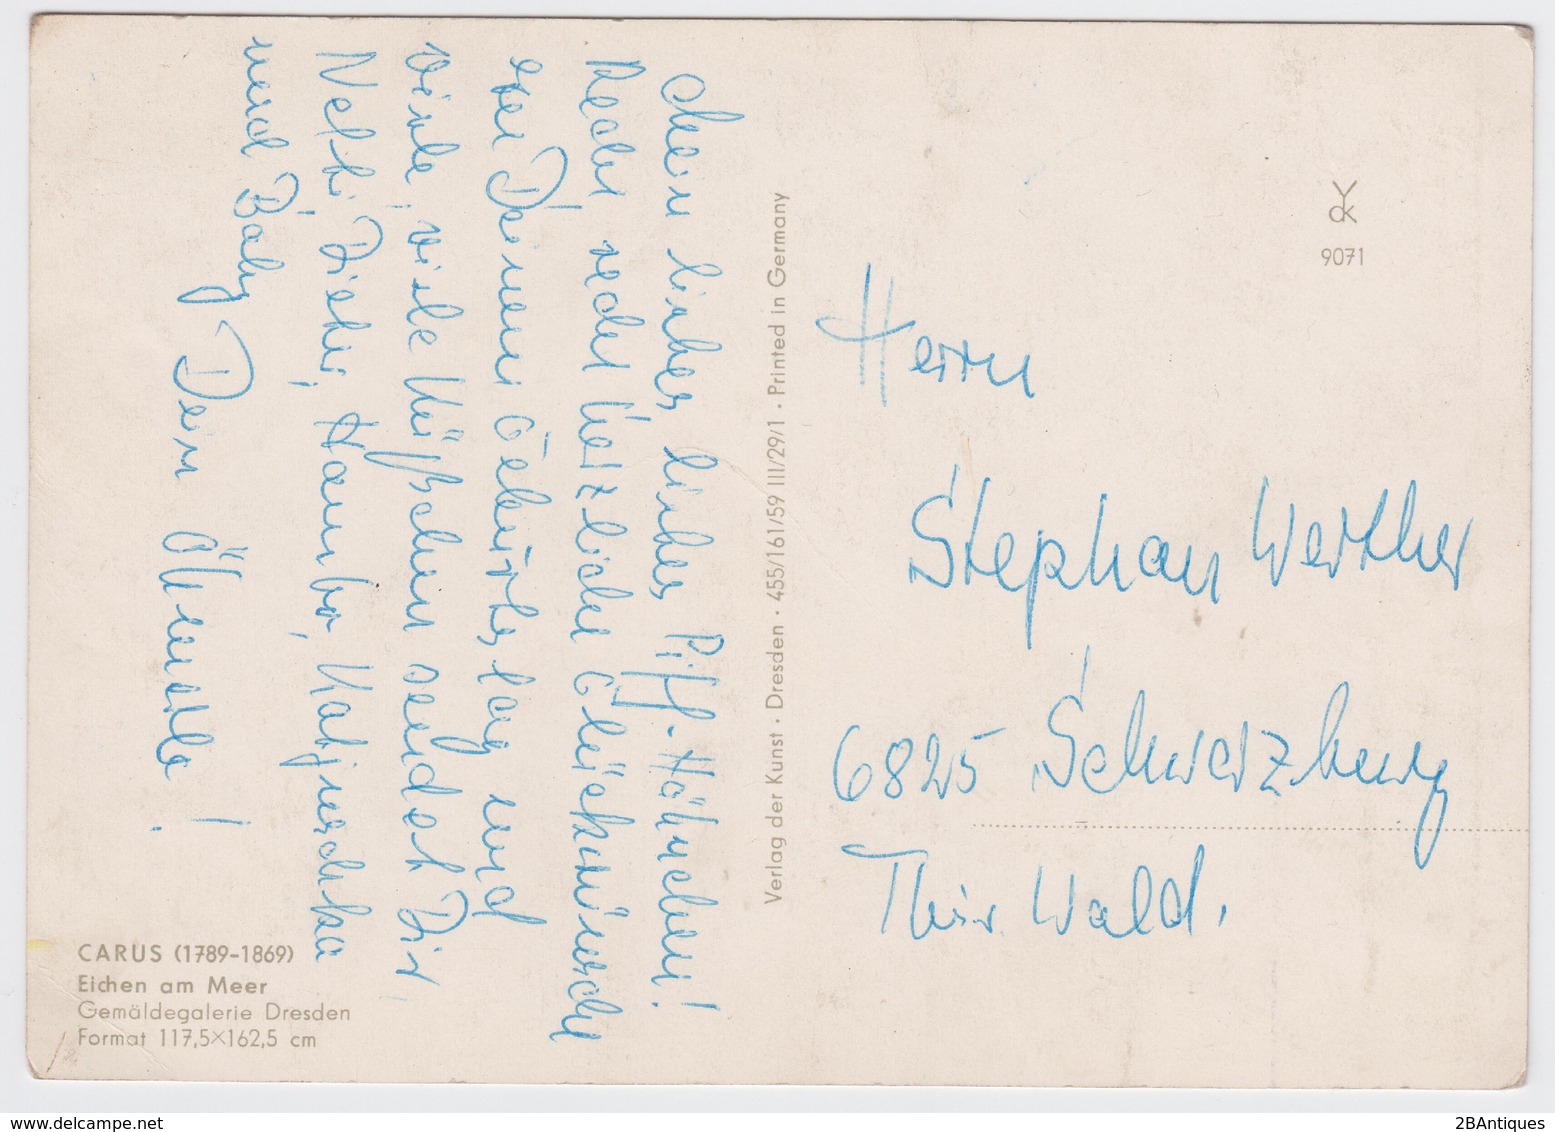 Mein lieber, lieber Piff-Hähnchen!
Recht recht herzliche Glückwünsche
zu Deinem Geburtstag und
viele, viele Küßchen sendet Dir,
Dieter,
und Baby
Dein
CARUS (1789-1869)
Eichen am Meer
Gemäldegalerie Dresden
Format 117,5×162,5 cm
Verlag der Kunst · Dresden · 455/161/59 III/29/1 · Printed in Germany
VdK
9071
Herrn
Stephan Werther
6825 Schwarzburg
Thür. Wald.
2BAntiques